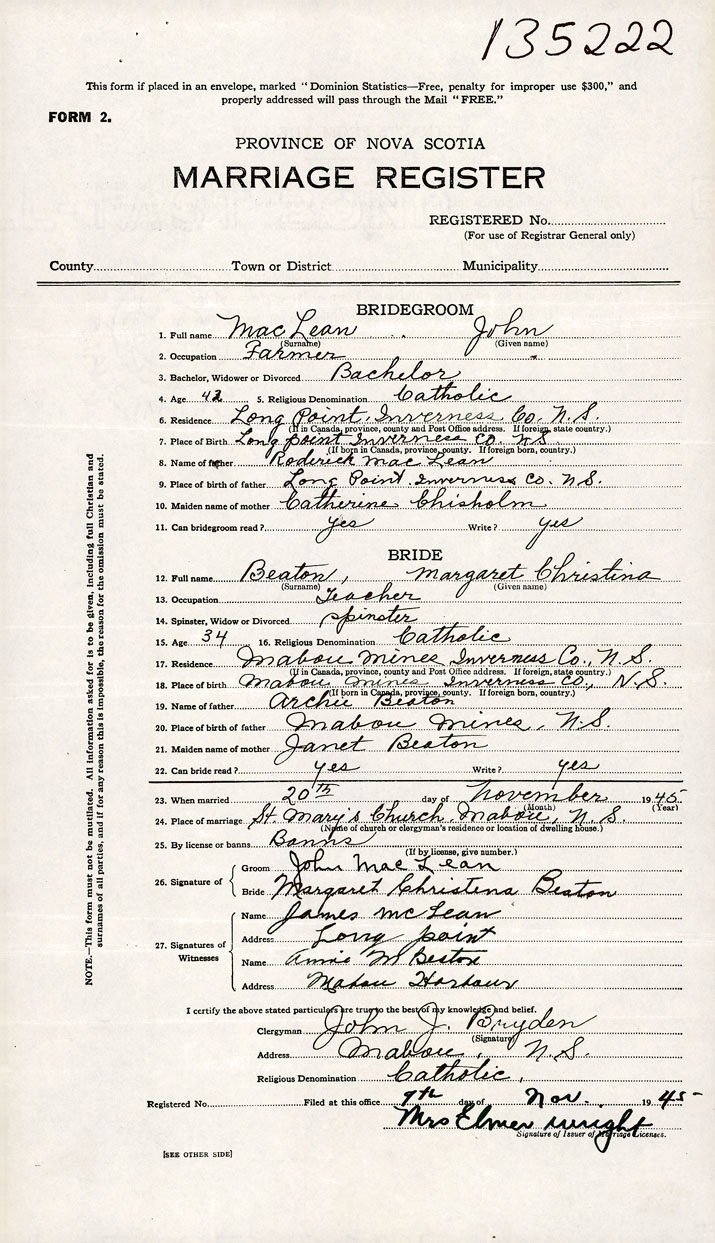 135222
This form if placed in an envelope, marked "Dominion Statistics—Free, penalty for improper use $300," and
properly addressed will pass through the Mail "FREE."
FORM 2.
PROVINCE OF NOVA SCOTIA
MARRIAGE REGISTER
REGISTERED No.
(For use of Registrar General only)
County Town or District Municipality
BRIDEGROOM
1. Full name Mac Lean John
(Surname) (Given name)
2. Occupation Farmer
3. Bachelor, Widower or Divorced Bachelor
4. Age 42 5. Religious Denomination Catholic
6. Residence Long Point, Inverness Co. N.S.
(If in Canada, province, county and Post Office address. If foreign, state country.)
7. Place of Birth Long point Inverness Co. N.S.
(If born in Canada, province, county. If foreign born, country.)
8. Name of father Roderick Mac Lean
9. Place of birth of father Long Point, Inverness Co. N.S.
10. Maiden name of mother Catherine Chisholm
11. Can bridegroom read? yes Write? yes
BRIDE
12. Full name Beaton, Margaret Christina
(Surname) (Given name)
13. Occupation Teacher
14. Spinster, Widow or Divorced spinster
15. Age 34 16. Religious Denomination Catholic
17. Residence Mabou Mines Inverness Co., N.S.
(If in Canada, province, county and Post Office address. If foreign, state country.)
18. Place of birth Mabou Mines Inverness Co., N.S.
(If born in Canada, province, county. If foreign born, country.)
19. Name of father Archie Beaton
20. Place of birth of father Mabou Mines, N.S.
21. Maiden name of mother Janet Beaton
22. Can bride read? yes Write? yes
23. When married 20th day of November 1945
(Month) (Year)
24. Place of marriage St. Mary's Church, Mabou, N.S.
(Name of church or clergyman's residence or location of dwelling house.)
25. By license or banns Banns
(If by license, give number.)
26. Signature of Groom John Mac Lean
Bride Margaret Christena Beaton
27. Signatures of Witnesses
Name James McLean
Address Long point
Name Annie M Beaton
Address Mabou Harbour
I certify the above stated particulars are true to the best of my knowledge and belief.
Clergyman John J. Bryden
(Signature)
Address Mabou, N.S.
Religious Denomination Catholic,
Registered No. Filed at this office 9th day of Nov. 1945
Mrs Elmer Wright
Signature of Issuer of Marriage Licenses.
[SEE OTHER SIDE]
NOTE.—This form must not be mutilated. All information asked for is to be given, including full Christian and
surnames of all parties, and if for any reason this is impossible, the reason for the omission must be stated.